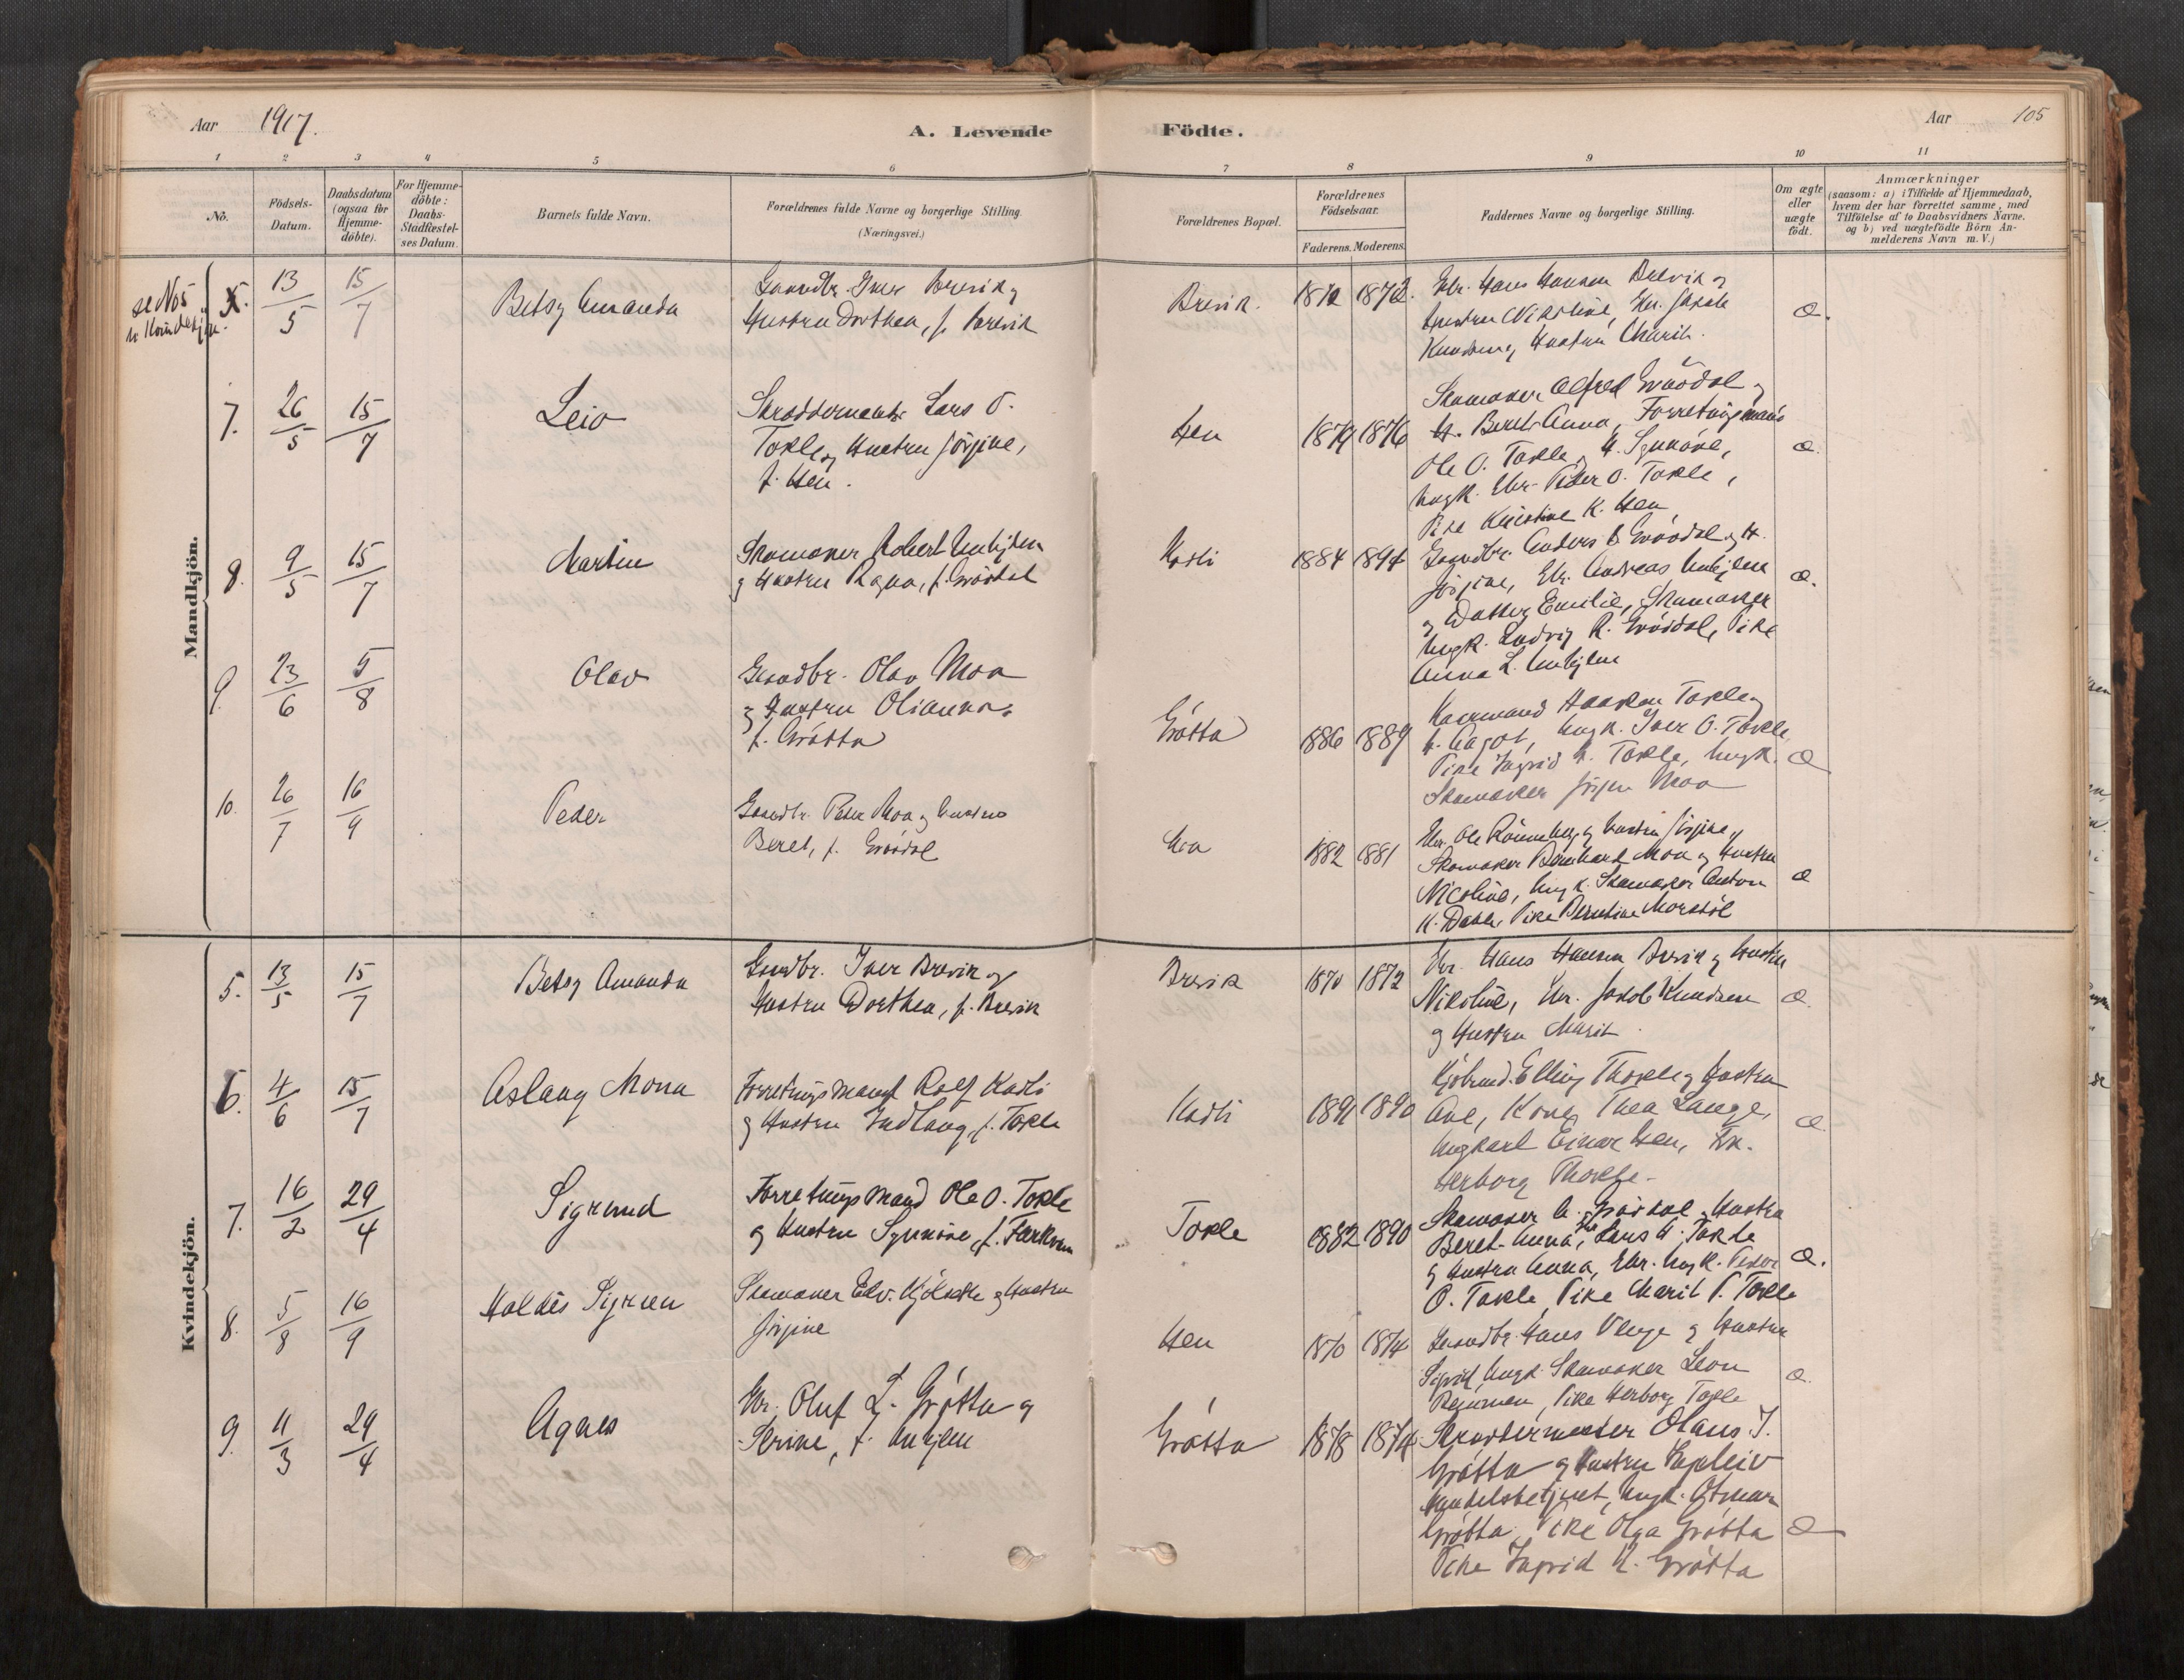 Aar 1917.
A. Levende Födte.
Aar 105
1 2 3 4 5 6 7 8 9 10 11
No.
Födsels-Datum.
Daabsdatum (ogsaa for Hjemme-döbte).
For Hjemme-döbte: Daabs-Stadfæstel-ses Datum.
Barnets fulde Navn.
Forældrenes fulde Navne og borgerlige Stilling.
(Næringsvei.)
Forældrenes Bopæl.
Forældrenes Födselsaar.
Faderens. Moderens.
Faddernes Navne og borgerlige Stilling.
Om ægte eller uægte födt.
Anmærkninger
(saasom: a) i Tilfælde af Hjemmedaab,
hvem der har forrettet samme, med
Tilföielse af to Daabsvidners Navne.
og b) ved uægtefödte Börn An-
melderens Navn m. V.)
Mandkjön.
se No 5
5. 13/5 15/7 Betsy Amanda
Gaardbr. Iver Brevik og
Hustru Dorthea, f. Brevik
Brevik. 1872.
Gbr. Hans Hansen Brevik og
Hustru Nikoline, Gbr. Jakob
Knudsen og Hustru Marit.
Æ.
7. 26/5 15/7 Leiv
Skræddermester Lars O.
Tokle og Hustru Jörgine,
f. Hen.
Hen 1879 1876
Skomaker Alfred Grövdal og
H. Beret-Anna, Forretningsmand
Ole O. Tokle og H. Synnöve,
Ungk. Gbr. Peder O. Tokle,
Pike Kristine K. Hen
Æ.
8. 9/5 15/7 Martin
Skomaker Robert Unhjem
og Hustru Ragna, f. Grövdal
Kasli 1884 1894
Gaardbr. Anders Grövdal og H.
Jörgine, Gbr. Andreas Unhjem
og Datter Emilie, Skomaker
Ungk. Ludvig R. Grövdal, Pike
Anna L. Unhjem
Æ.
9. 23/6 5/8 Olav
Gaardbr. Olav Moa
og Hustru Olianna,
f. Grötta
Grötta 1886 1889
Haakon Tokle og
H. Aagot, Ungk. Iver O. Tokle,
Pike Ingrid Tokle, Ungk.
Skomaker Jörgen Moa
Æ
10. 26/7 16/9 Peder
Gaardbr. Peder Moa og Hustru
Beret, f. Grövdal
Moa 1882 1881
Gbr. Ole Rönneberg og Hustru Jörgine,
Skomaker Bernhard Moa og Hustru
Nicoline, Ungk. Skomaker Anton
K. Dahle, Pike Berntine Morstöl
Æ
Kvindekjön.
5. 13/5 15/7 Betsy Amanda
Gaardbr. Iver Brevik og
Hustru Dorthea, f. Brevik
Brevik 1870 1872
Gbr. Hans Hansen Brevik og Hustru
Nikoline, Gbr. Jakob Knudsen
og Hustru Marit.
Æ.
6. 4/6 15/7 Aslaug Mona
Forretningsmand Rolf Kasli
og Hustru Indlaug, f. Tokle
Kasli 1891 1890
Kjöbmd. Elling Thokle og Hustru
Ane, Kone Thea Lange,
Ungkarl Einar Hen, Frk.
Herborg Thokle.
Æ.
7. 16/2 29/4 Sigrund
Forretningsmand Ole O. Tokle
og Hustru Synnöve, f.
Tokle 1882 1890
Skomaker A. Grövdal og Hustru
Beret-Anna, Gbr. Lars Tokle
og Hustru Anna, Gbr. Ungk. Peder
O. Tokle, Pike Marit P. Tokle
Æ.
8. 5/8 16/9 Haldis Sigrun
Skomaker Edv. Kjölseth og Hustru
Jörgine
Hen 1870 1874
Gaardbr. Hans Venge og Hustru
Sigrid, Ungk. Skomaker Leon
Pike Herborg Tokle
Æ.
9. 11/3 29/4 Agnes
Gbr. Oluf L. Grötta og
Serine, f. Unhjem
Grötta 1878 1874
Skræddermester Olaus J.
Grötta og Hustru Ingleiv
Handelsbetjent, Ungk. Otmar
Grötta, Pike Olga Grötta
Pike Ingrid K. Grötta
Æ